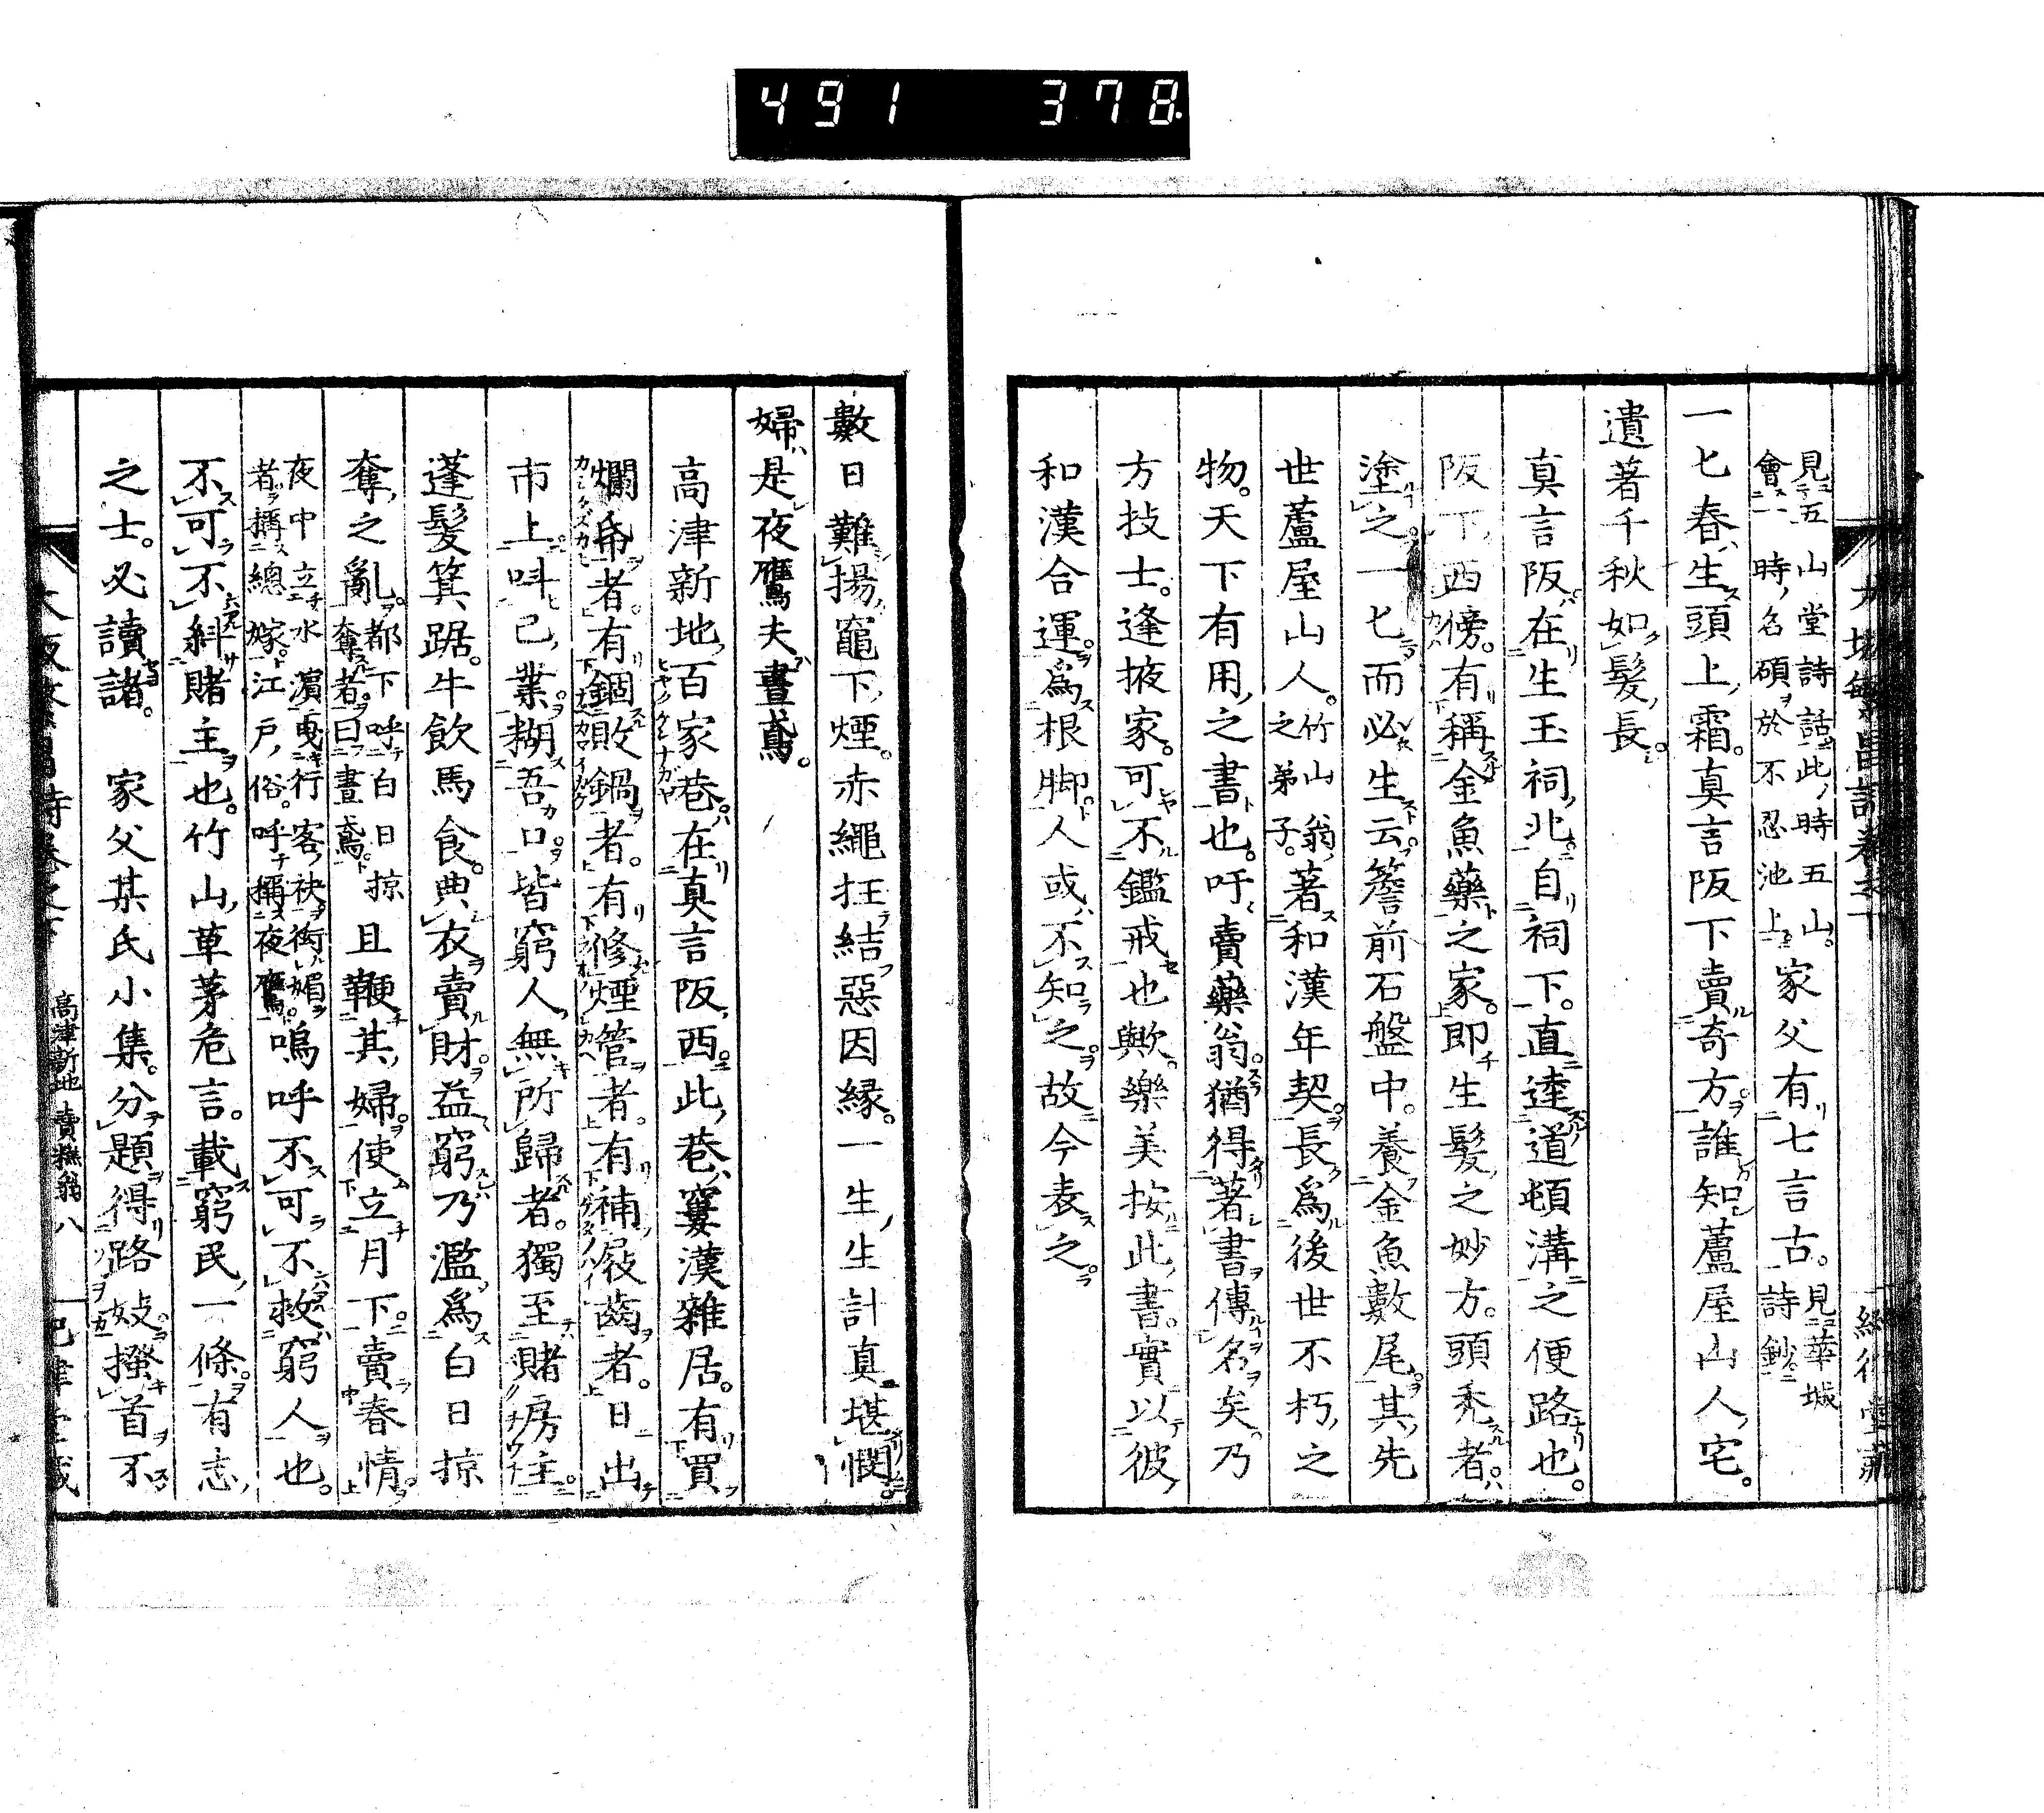 491 378
見五山堂詩話此時五山
會一時名碩於不忍池上家父有七言古見華城
詩鈔
一匕春生頭上霜真言阪下賣奇方誰知蘆屋山人宅
遺著千秋如髮長
真言阪在生玉祠北自祠下直達道頓溝之便路也
阪下西傍有稱金魚藥之家即生髮之妙方頭禿者
塗之一匕而必生云簷前石盤中養金魚數尾其先
世蘆屋山人竹山翁
之弟子著和漢年契長為後世不朽之
物天下有用之書也吁賣藥翁猶得著書傳名矣乃
方技士逢掖家可不鑑戒也歟藥美按此書實以彼
和漢合運為根脚人或不知之故今表之
數日難揚竈下煙赤繩抂結惡因縁一生生計真堪憫
婦是夜鷹夫晝鳶
高津新地百家巷在真言阪西此巷窶漢雜居有買
爛帋者有錮敗鍋者有修煙管者有補屐齒者日出
市上呌已業糊吾口皆窮人無所歸者獨至賭房主
蓬髮箕踞牛飲馬食典衣賣財益窮乃濫為白日掠
奪之亂都下呼白日掠
奪者曰晝鳶且鞭其婦使立月下賣春情
夜中立水濱曳行客袂衒媚
者稱總嫁江戶俗呼稱夜鷹嗚呼不可不救窮人也
不可不糾賭主也竹山草茅危言載窮民一條有志
之士必讀諸 家父某氏小集分題得路妓搔首不
高津新地 賣藥翁 八